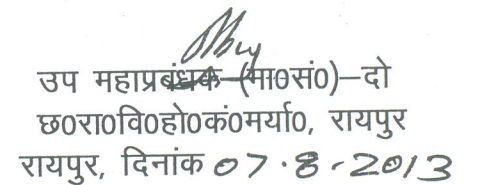 उप महाप्रबंधक (मा0सं0)–दो
छ0रा0वि0हो0कं0मर्या0, रायपुर
रायपुर, दिनांक 07.8.2013